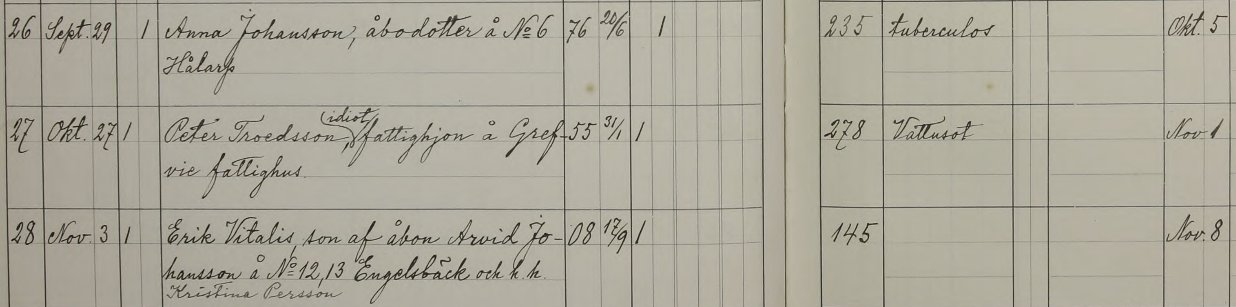 26 Sept. 29 1 Anna Johansson, åbodotter å No 6 76 20/6 1 235 tuberculos Okt. 5
Hålarp
27 Okt. 27 1 Peter Troedsson, (idiot) fattighjon å Gref- 55 31/1 1 278 Vattusot Nov 1
vie fattighus.
28 Nov. 3 1 Erik Vitalis, son af åbon Arvid Jo- 08 17/9 1 145 Nov. 8
hansson å No 12, 13 Engelsbäck och h. h.
Kristina Persson